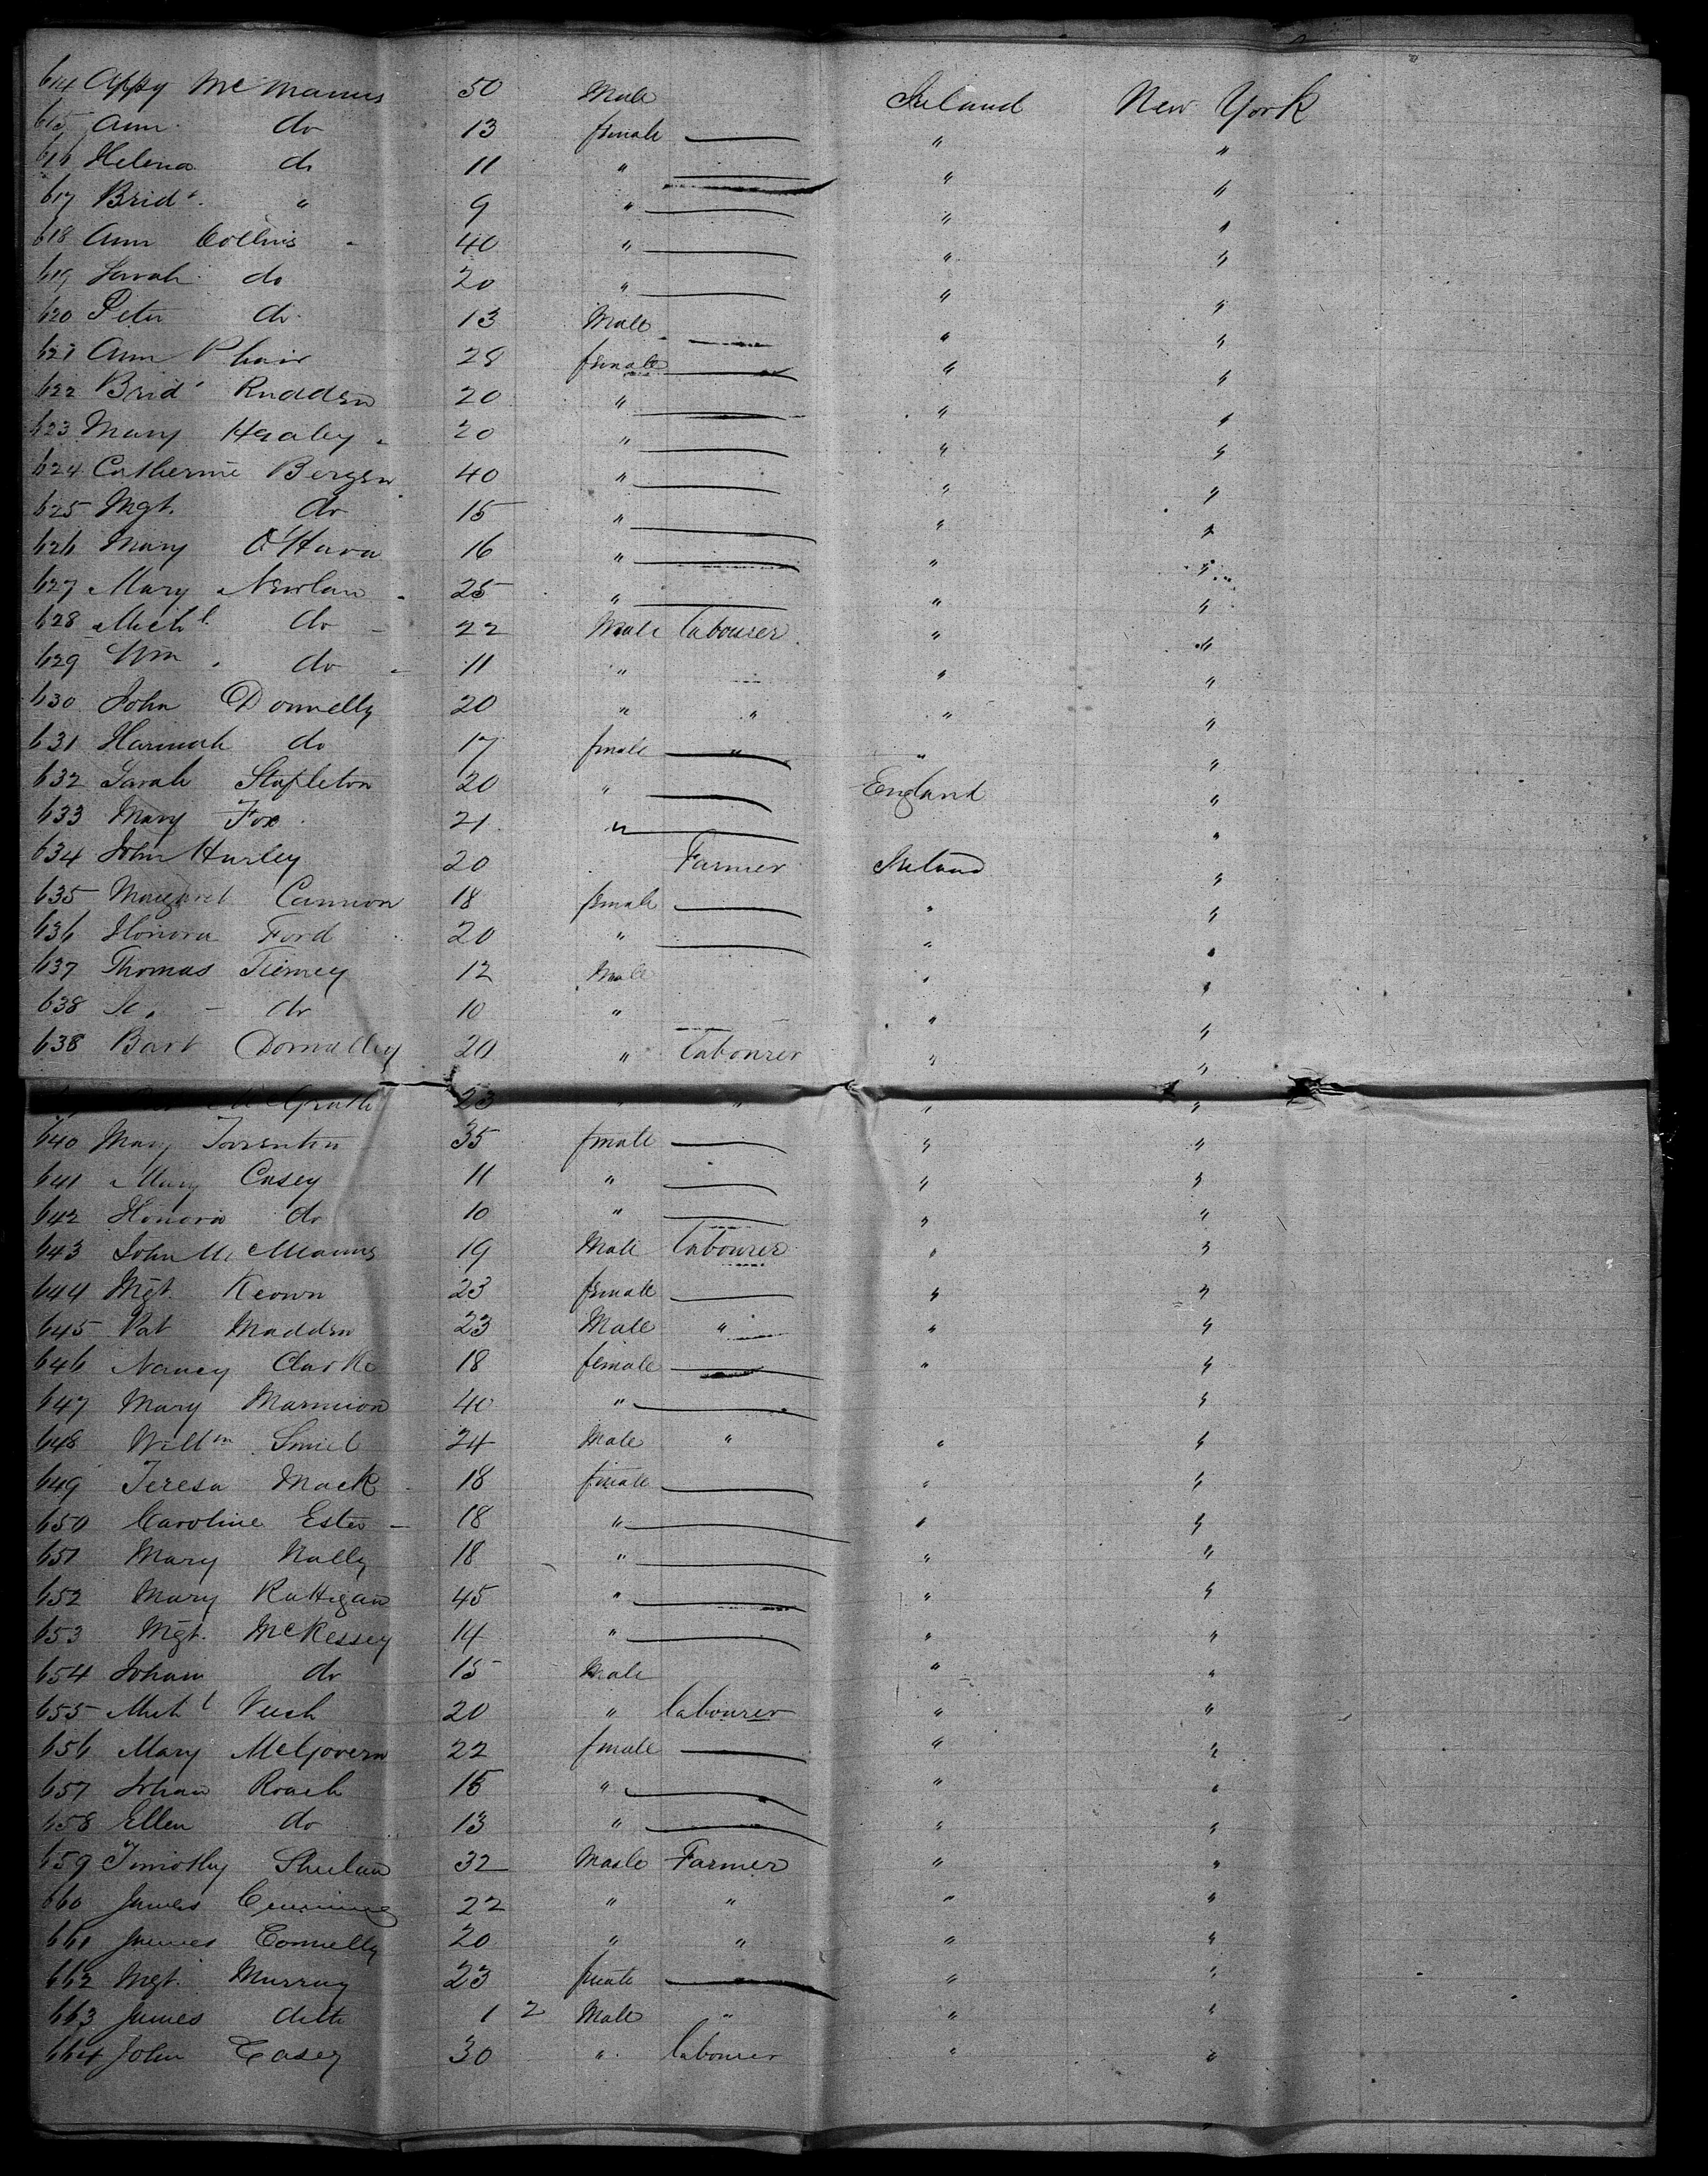 614 Appy McManus 50 Male Ireland New York
615 Ann do 13 female — " "
616 Helena do 11 " — " "
617 Bridt. " 9 " — " "
618 Ann Collins 40 " — " "
619 Sarah do 20 " — " "
620 Peter do 13 Male " "
621 Ann Phair 28 female — " "
622 Bridt Rudden 20 " — " "
623 Mary Healey 20 " — " "
624 Catherine Bergen 40 " — " "
625 Mgt. do 15 " — " "
626 Mary O'Hara 16 " — " "
627 Mary Newlan 25 " — " "
628 Michl. do 22 Male labourer " "
629 Wm do 11 " " "
630 John Donnelly 20 " " " "
631 Hannah do 17 female " " "
632 Sarah Stapleton 20 " — England "
633 Mary Fox 21 " — "
634 John Hurley 20 Farmer Ireland "
635 Margaret Cannion 18 female — " "
636 Honora Ford 20 " — " "
637 Thomas Tierney 12 Male " "
638 do 10 " " "
638 Bart Donnelley 20 " labourer " "
McGrath 23 " " " "
640 Mary 35 female — " "
641 Mary Casey 11 " — " "
642 Honora do 10 " — " "
643 John McManus 19 Male labourer " "
644 Mgt. Keown 23 female — " "
645 Pat Madden 23 Male " " "
646 Nancy Clarke 18 female — " "
647 Mary Marmion 40 " — "
648 Willm 24 Male " " "
649 Teresa Mack 18 female — " "
650 Caroline 18 " — " "
651 Mary Nally 18 " — " "
652 Mary Rattigan 45 " — " "
653 Mgt. McKessey 14 " — " "
654 Johan do 15 Male " "
655 Michl 20 " labourer " "
656 Mary McGovern 22 female — " "
657 Johan Roach 15 " — " "
658 Ellen do 13 " — " "
659 Timothy Sheehan 32 Male Farmer " "
660 James 22 " " " "
661 James Connelly 20 " " " "
662 Mgt. Murray 23 female — " "
663 James ditto 1 2 Male " " "
664 John Casey 30 " labourer " "